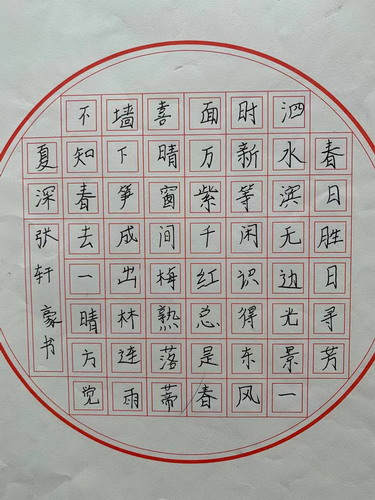 春日胜日寻芳
泗水滨无边光景一
时新等闲识得东风
面万紫千红总是春
喜晴窗间梅熟落蒂
墙下笋成出林连雨
不知春去一晴方觉
夏深张轩豪书